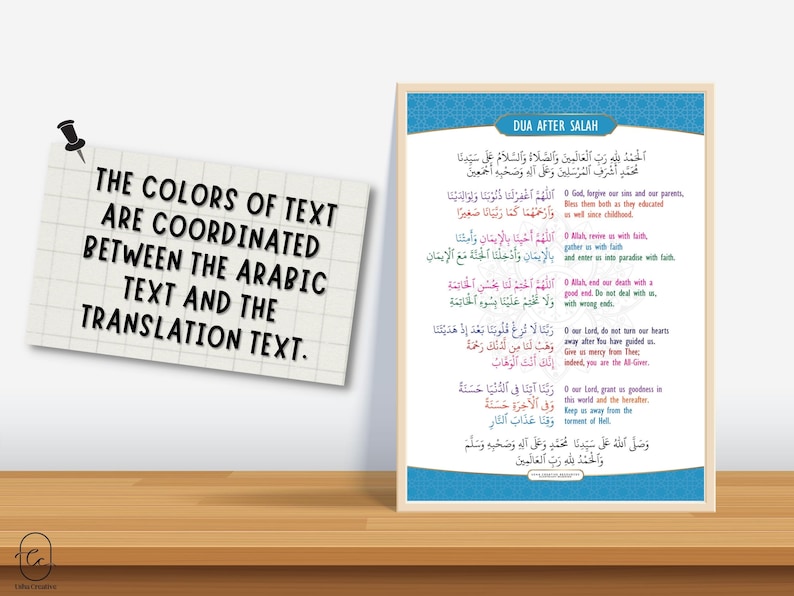 THE COLORS OF TEXT
ARE COORDINATED
BETWEEN THE ARABIC
TEXT AND THE
TRANSLATION TEXT.
DUA AFTER SALAH
الْحَمْدُ لِلّٰهِ رَبِّ الْعَالَمِيْنَ وَالصَّلَاةُ وَالسَّلَامُ عَلَى سَيِّدِنَا
مُحَمَّدٍ أَشْرَفِ الْمُرْسَلِيْنَ وَعَلَى آلِهِ وَصَحْبِهِ أَجْمَعِيْنَ
اَللّٰهُمَّ اغْفِرْلَنَا ذُنُوْبَنَا وَلِوَالِدَيْنَا
وَارْحَمْهُمَا كَمَا رَبَّيَانَا صَغِيْرًا
O God, forgive our sins and our parents,
Bless them both as they educated
us well since childhood.
اَللّٰهُمَّ أَحْيِنَا بِالْإِيمَانِ وَأَمِتْنَا
بِالْإِيمَانِ وَأَدْخِلْنَا الْجَنَّةَ مَعَ الْإِيمَانِ
O Allah, revive us with faith,
gather us with faith
and enter us into paradise with faith.
اَللّٰهُمَّ اخْتِمْ لَنَا بِحُسْنِ الْخَاتِمَةِ
وَلَا تَخْتِمْ عَلَيْنَا بِسُوءِ الْخَاتِمَةِ
O Allah, end our death with a
good end. Do not deal with us,
with wrong ends.
رَبَّنَا لَا تُزِغْ قُلُوْبَنَا بَعْدَ إِذْ هَدَيْتَنَا
وَهَبْ لَنَا مِن لَّدُنْكَ رَحْمَةً
إِنَّكَ أَنْتَ الْوَهَّابُ
O our Lord, do not turn our hearts
away after You have guided us.
Give us mercy from Thee;
indeed, you are the All-Giver.
رَبَّنَا آتِنَا فِى الدُّنْيَا حَسَنَةً
وَفِى الْآخِرَةِ حَسَنَةً
وَقِنَا عَذَابَ النَّارِ
O our Lord, grant us goodness in
this world and the hereafter.
Keep us away from the
torment of Hell.
وَصَلَّى اللّٰهُ عَلَى سَيِّدِنَا مُحَمَّدٍ وَعَلَى آلِهِ وَصَحْبِهِ وَسَلَّمَ
وَالْحَمْدُ لِلّٰهِ رَبِّ الْعَالَمِيْنَ
Usha Creative